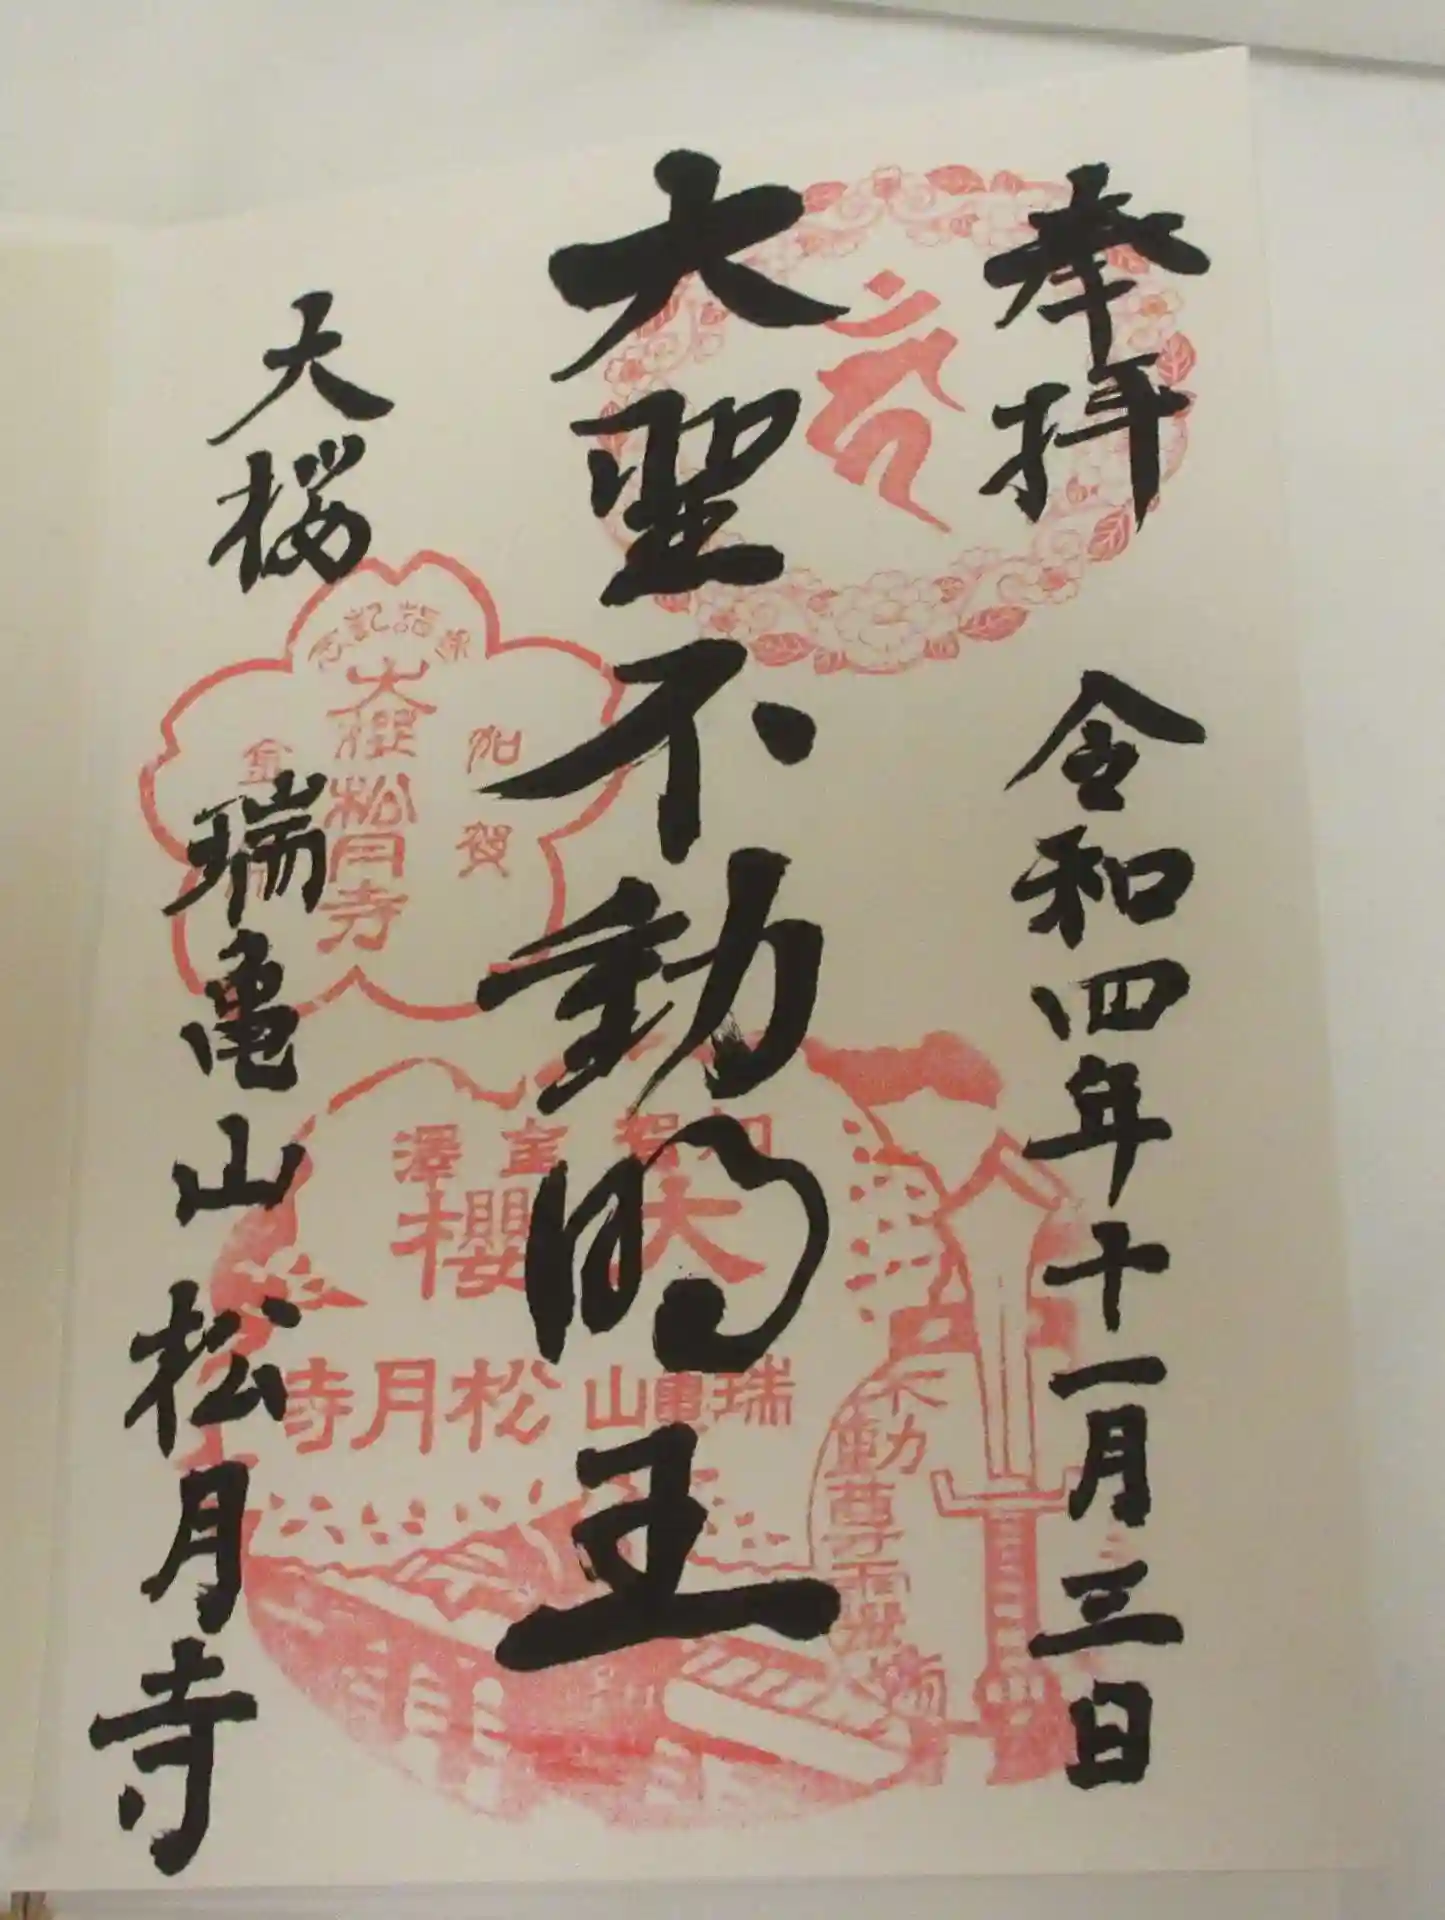 奉拝
令和四年十一月三日
大聖不動明王
大桜
瑞亀山松月寺
参詣記念
加賀
大櫻松月寺
金
加賀金澤
大櫻
瑞亀山松月寺
不動尊霊場